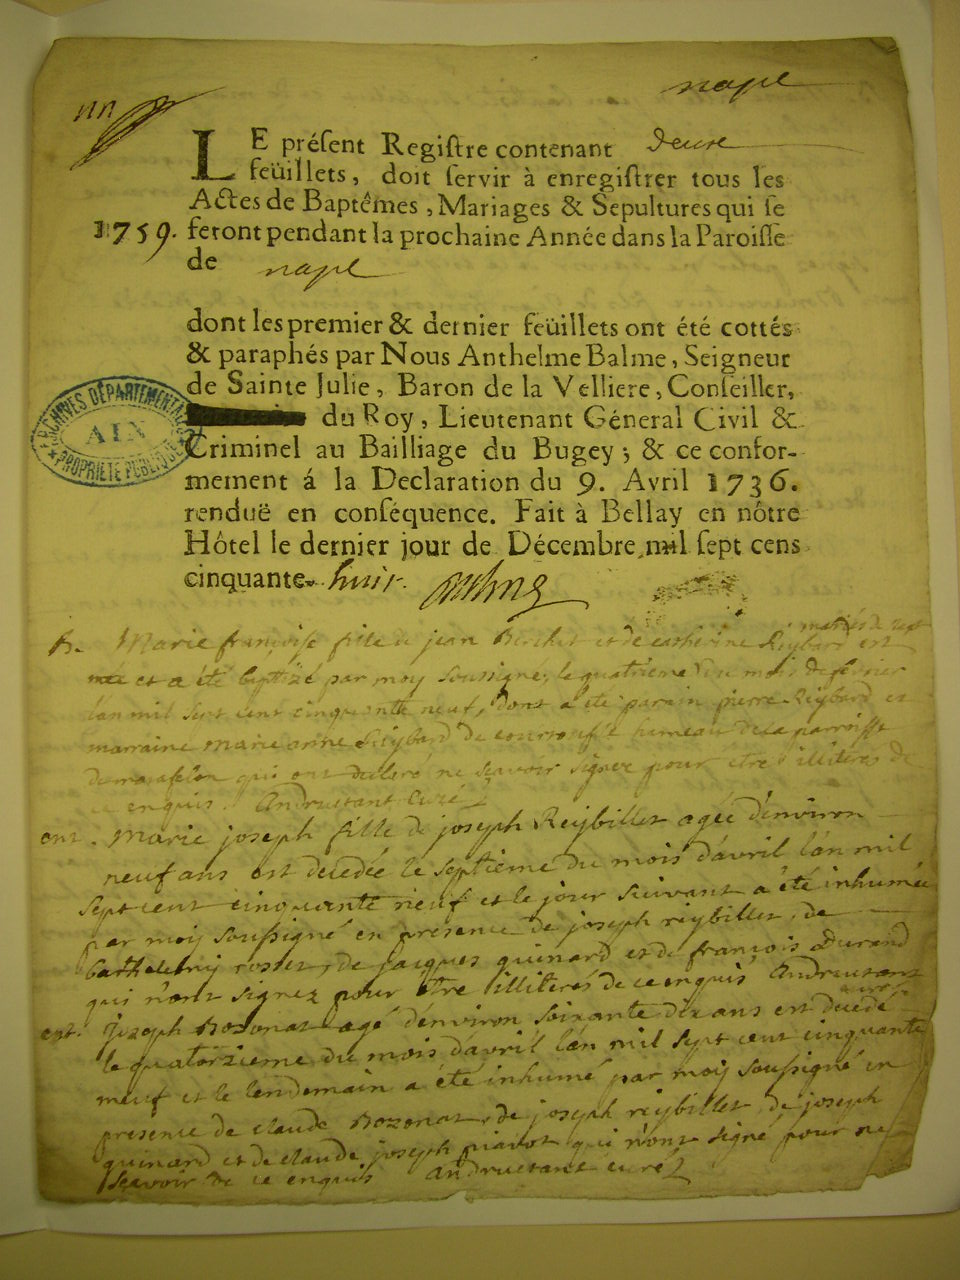 napt
LE préſent Regiſtre contenant deux
feüillets, doit ſervir à enregiſtrer tous les
Actes de Baptêmes, Mariages & Sepultures qui ſe
1759. feront pendant la prochaine Année dans la Paroiſſe
de napt
dont les premier & dernier feüillets ont été cottés
& paraphés par Nous Anthelme Balme, Seigneur
de Sainte Julie, Baron de la Velliere, Conſeiller,
du Roy, Lieutenant Géneral Civil &
Criminel au Bailliage du Bugey; & ce confor-
mement á la Declaration du 9. Avril 1736.
renduë en conſéquence. Fait à Bellay en nôtre
Hôtel le dernier jour de Décembre mil ſept cens
cinquante huit.
ARCHIVES DÉPARTEMENTALES
AIN
PROPRIÉTÉ PUBLIQUE
B. Marie françoise fille de jean Berchet et de catherine Reybard est
née et a été baptizé par moy soussigné, le quatrieme du mois de fevrier
l'an mil sept cent cinquante neuf, dont a été parain pierre Reybard et
marraine Marie anne Reybard de hameau de la parroisse
de qui ont declaré ne sçavoir signer pour etre illiterés de
ce enquis. Andruetant curé
ent. Marie joseph fille de joseph Reybillet agée d'environ
neuf ans est decedée le septieme du mois d'avril l'an mil
sept cent cinquante neuf et le jour suivant a été inhumée
par moy soussigné en presence de joseph reybillet, de
Barthelemy rostet, de jacques guinard et de françois Durand
qui n'ont signez pour etre illiterés de ce enquis Andruetant
curé
ent. Joseph Bozonat agé d'environ soixante dix ans est decedé
le quatorzieme du mois d'avril l'an mil sept cent cinquante
neuf et le lendemain a été inhumé par moy soussigné en
presence de claude Bozonat, de joseph reybillet, de joseph
guinard et de claude joseph piavot qui n'ont signé pour ne
sçavoir de ce enquis Andruetant curé